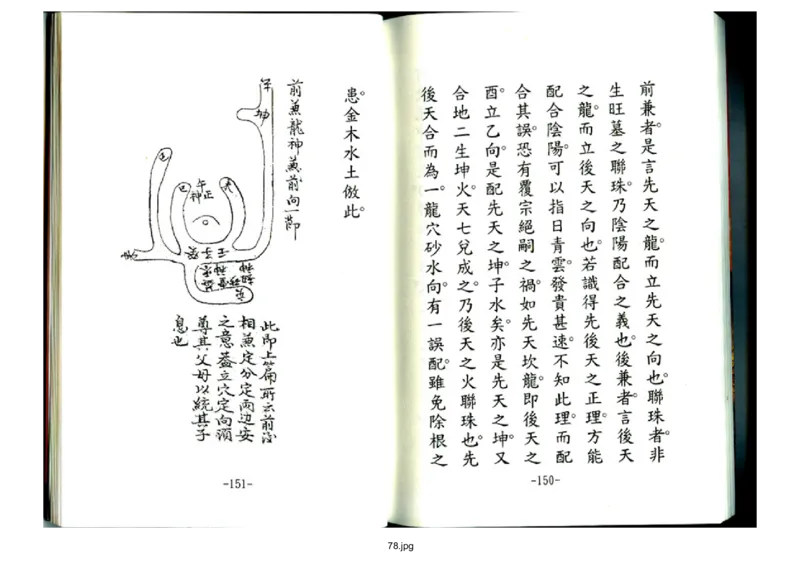 前兼者。是言先天之龍。而立先天之向也。聯珠者。非
生旺墓之聯珠。乃陰陽配合之義也。後兼者。言後天
之龍。而立後天之向也。若識得先後天之正理。方能
配合陰陽。可以指日青雲。發貴甚速。不知此理。而配
合其誤。恐有覆宗絕嗣之禍。如先天坎龍。即後天之
酉。立乙向。是配先天之坤。子水矣。亦是先天之坤。又
合地二生坤火。天七兌成之。乃後天之火聯珠也。先
後天合而為一。龍穴砂水向。有一誤配。雖免除根之
-150-
患。金木水土倣此。
前兼龍神兼前向一節
坤
午
正
神
此即上篇所云前後
相兼定分定兩边安
之意蓋立穴定向須
尊其父母以統其子
息也
-151-
78.jpg